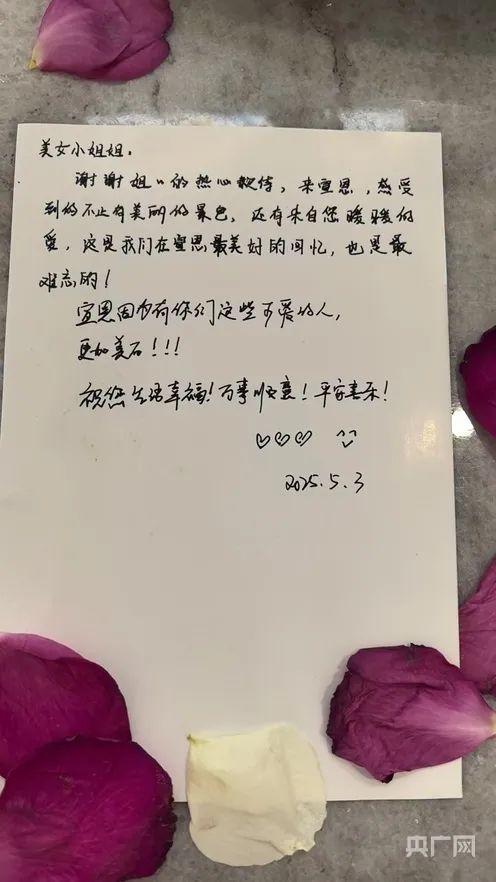 美女小姐姐.
谢谢姐〃的热心款待，来宣恩，感受
到的不止有美丽的景色，还有来自您暖暖的
爱，这是我们在宣恩最美好的回忆，也是最
难忘的！
宣恩因为有你们这些可爱的人，
更加美好！！！
祝您生活幸福！万事顺意！平安喜乐！
♡♡♡ ^^
2025.5.3
央广网